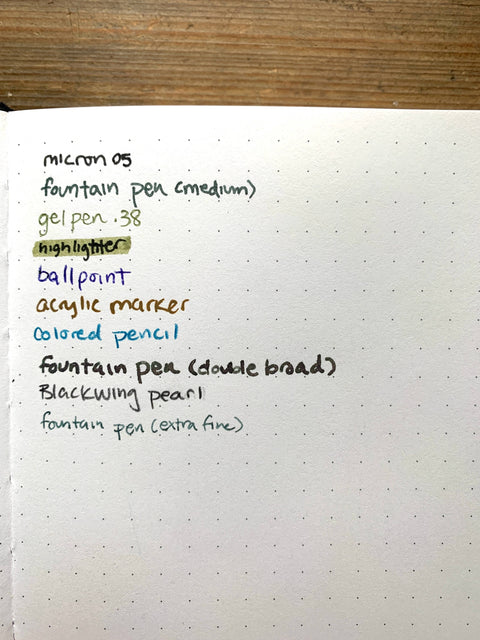 micron 05
fountain pen (medium)
gel pen .38
highlighter
ballpoint
acrylic marker
colored pencil
fountain pen (double broad)
Blackwing pearl
fountain pen (extra fine)